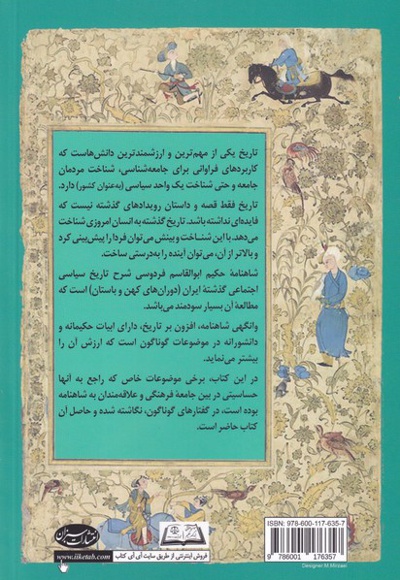 تاریخ یکی از مهم‌ترین و ارزشمندترین دانش‌هاست که
کاربردهای فراوانی برای جامعه‌شناسی، شناخت مردمان
جامعه و حتی شناخت یک واحد سیاسی (به‌عنوان کشور) دارد.
تاریخ فقط قصه و داستان رویدادهای گذشته نیست که
فایده‌ای نداشته باشد. تاریخ گذشته به انسان امروزی شناخت
می‌دهد. با این شناخت و بینش می‌توان فردا را پیش‌بینی کرد
و بالاتر از آن، می‌توان آینده را به‌درستی ساخت.
شاهنامهٔ حکیم ابوالقاسم فردوسی شرح تاریخ سیاسی
اجتماعی گذشتهٔ ایران (دوران‌های کهن و باستان) است که
مطالعهٔ آن بسیار سودمند می‌باشد.
وانگهی شاهنامه، افزون بر تاریخ، دارای ابیات حکیمانه و
دانشورانه در موضوعات گوناگون است که ارزش آن را
بیشتر می‌نماید.
در این کتاب، برخی موضوعات خاص که راجع به آنها
حساسیتی در بین جامعه فرهنگی و علاقه‌مندان به شاهنامه
بوده است، در گفتارهای گوناگون، نگاشته شده و حاصل آن
کتاب حاضر است.
ISBN: 978-600-117-635-7
9 786001 176357
Designer M.Mirzaei
فروش اینترنتی از طریق سایت آی آی کتاب
www.iiketab.com